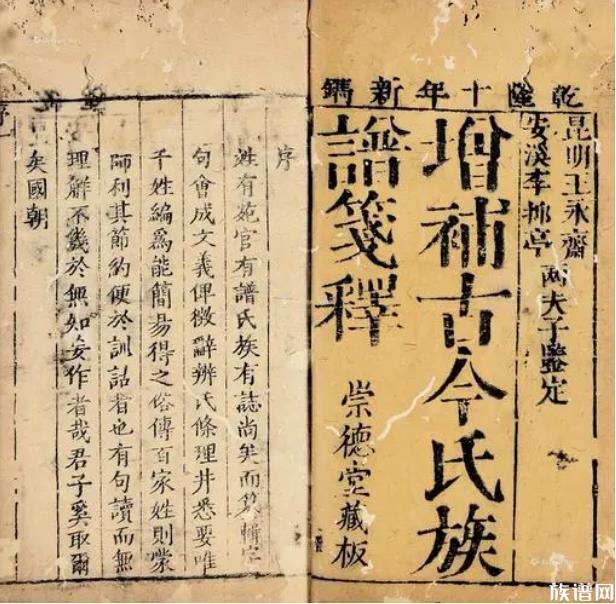 乾隆十年新鐫
昆明王永齋
安溪李亭
两夫子鑒定
增補古今氏族
譜箋釋
崇德堂藏板
序
姓有苑官有譜氏族有誌尚矣而纂輯
句會成文義俾徵辭辨氏條理井悉要唯
千姓編爲能簡易得之俗傳百家姓則蒙
師利其節約便於訓詁者也有句讀而無
理解不幾於無如妄作者哉君子奚取爾
矣國朝
族谱网